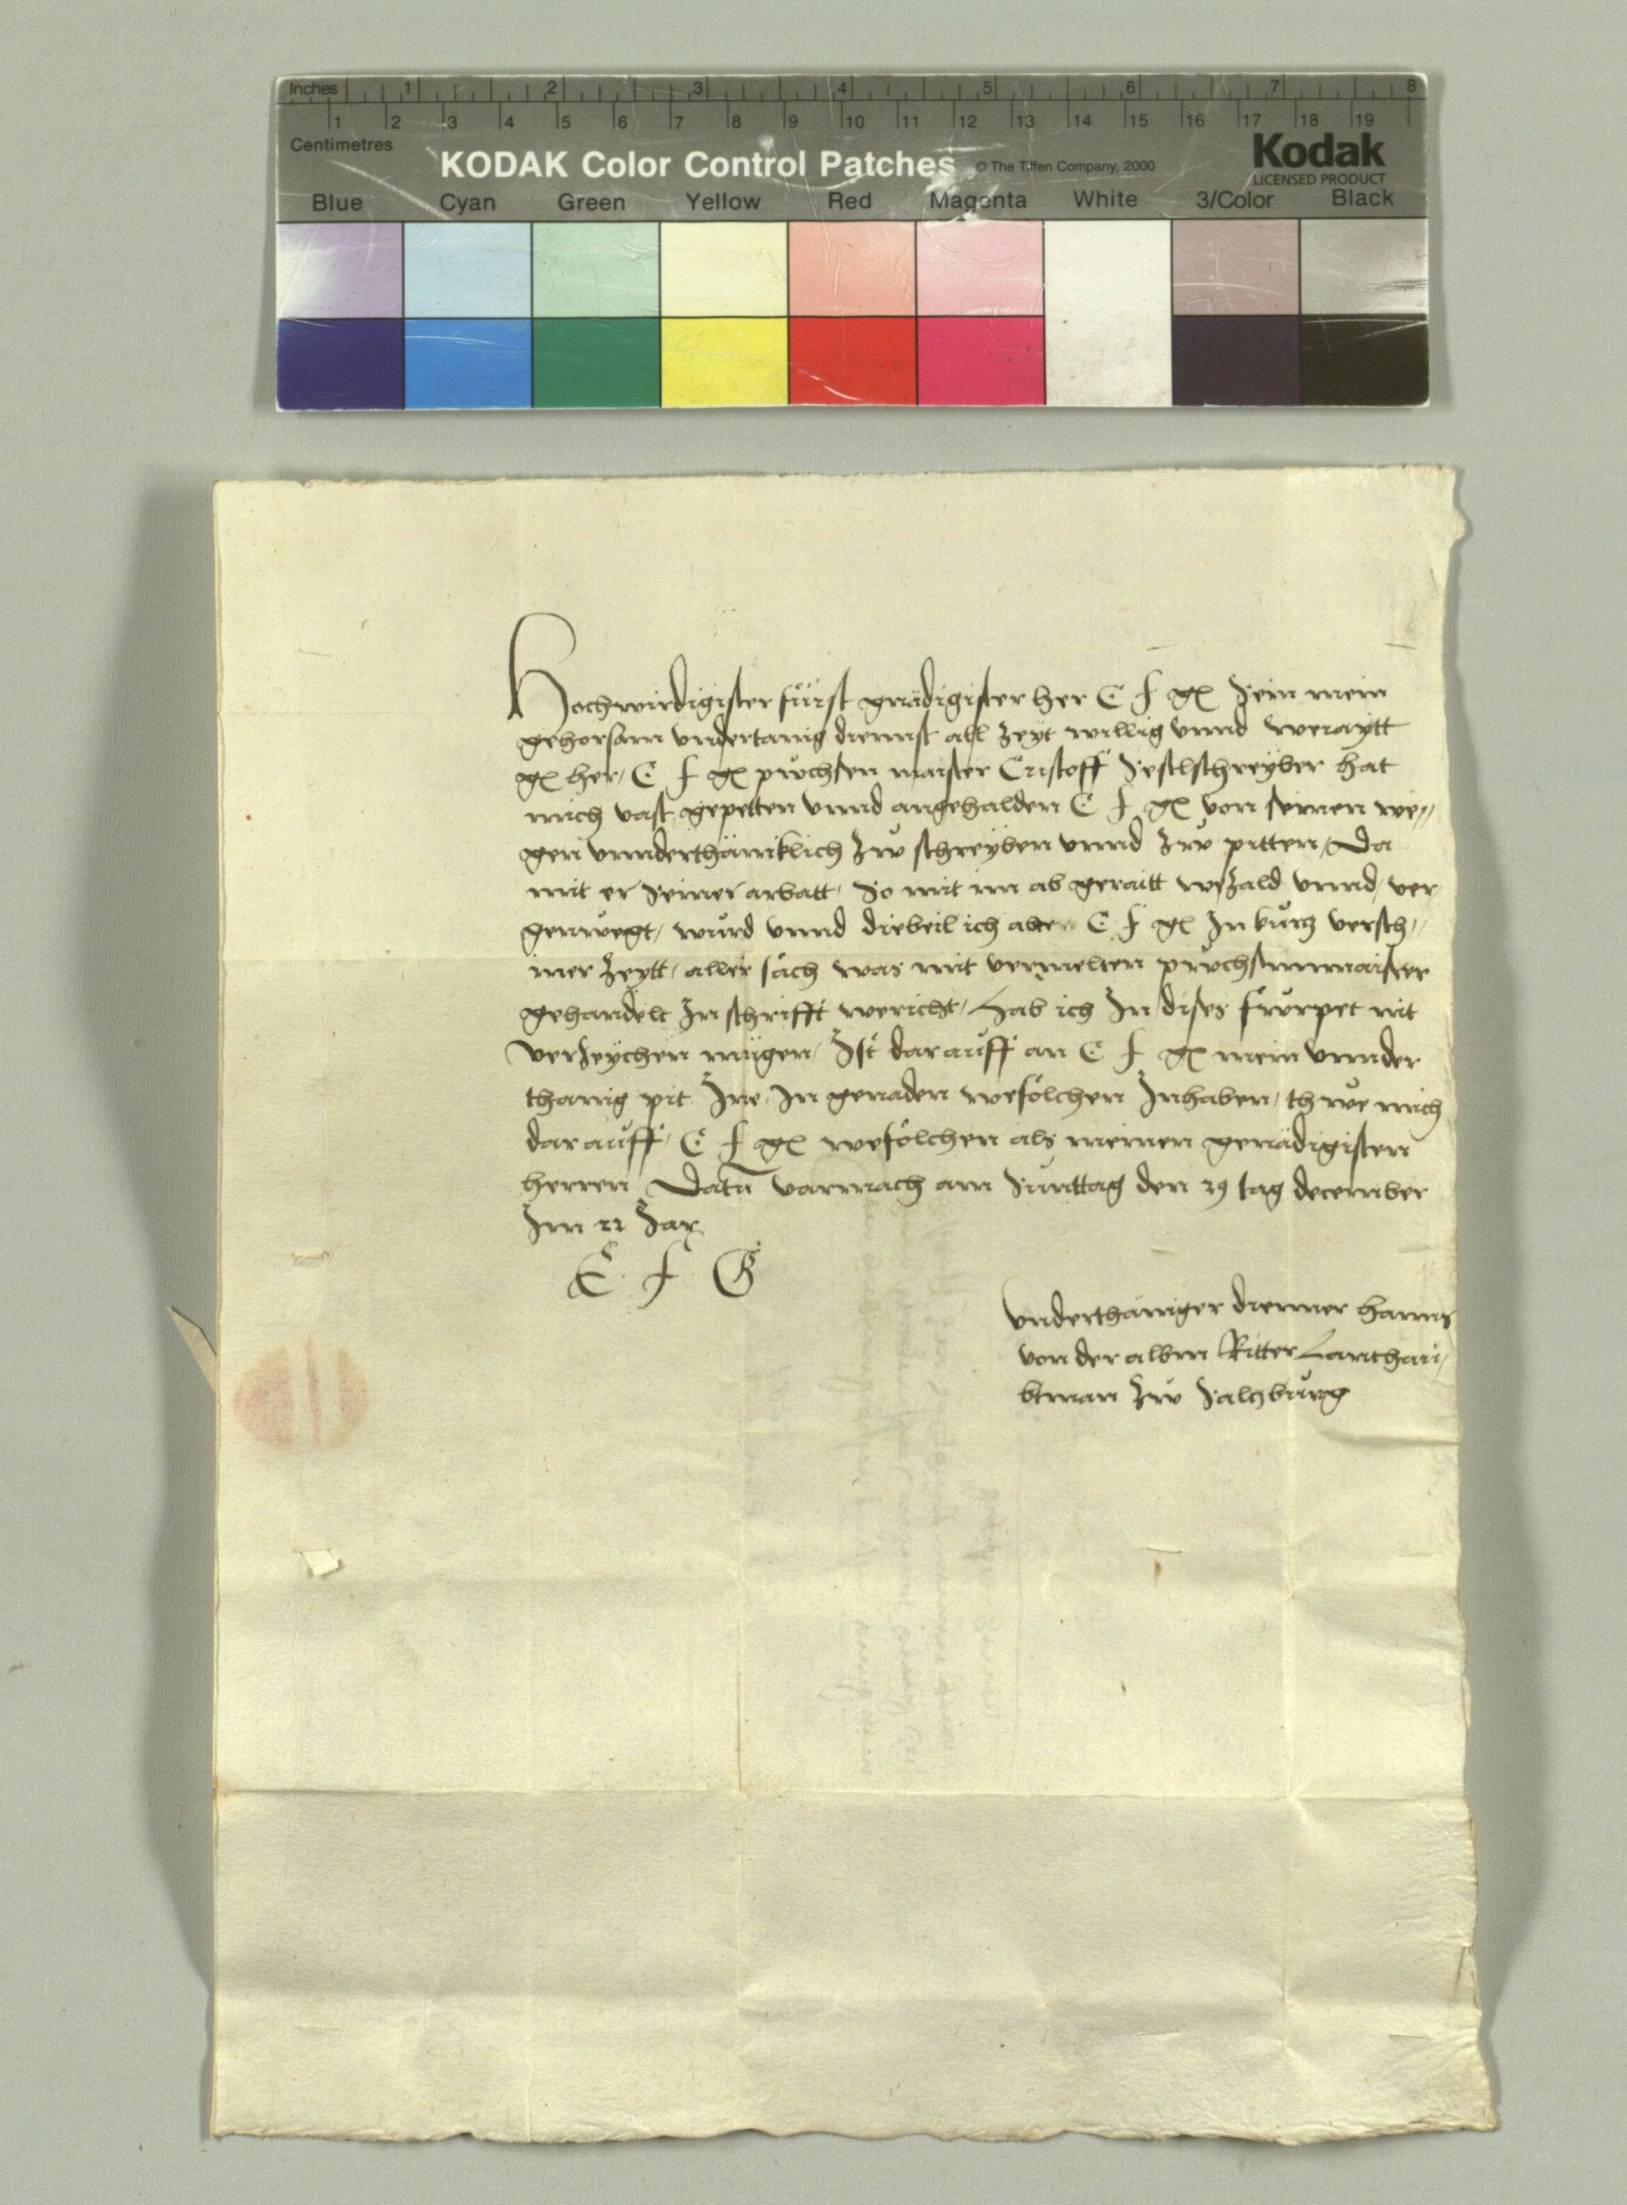 Inches 1 2 3 4 5 6 7 8
1 2 3 4 5 6 7 8 9 10 11 12 13 14 15 16 17 18 19
Centimetres
KODAK Color Control Patches © The Tiffen Company, 2000 Kodak
LICENSED PRODUCT
Blue Cyan Green Yellow Red Magenta White 3/Color Black
Hochwirdigister fürst gnädigister her E f g Sein mein
gehorsam vndertanig diennst all zeyt willig vnnd weraytt
g her / E f g püchsen maister Cristoff Seslschreyber hat
mich vast gepetten vnnd angehalden E f g von seinen we//
gen vnnderthäniklich zw schreyben vnnd zw pitten / Da
mit er seiner arbatt / So mit im ab geraitt wezald vnnd / ver/
genwegt / würd vnnd dieweil ich aber E f g In kurtz versch//
iner zeytt / aller sach was mit vermelten püchsenmaister
gehandelt In schrifft wericht / Hab ich In dises fürpet nit
verzeychen mügen / Ist darauff an E f g mein vnnder
thanig pit Ine / In genaden wefolchen Inhaben / thwe mich
darauff / E f g wefolchen als meinen genädigisten
herren Datu varnnach am Sunttag den 29 tag december
Im 22 Jar
E f G
Vnderthäniger dienner hanns
von der albm Ritter Lanthau/
btman zw Saltzburg